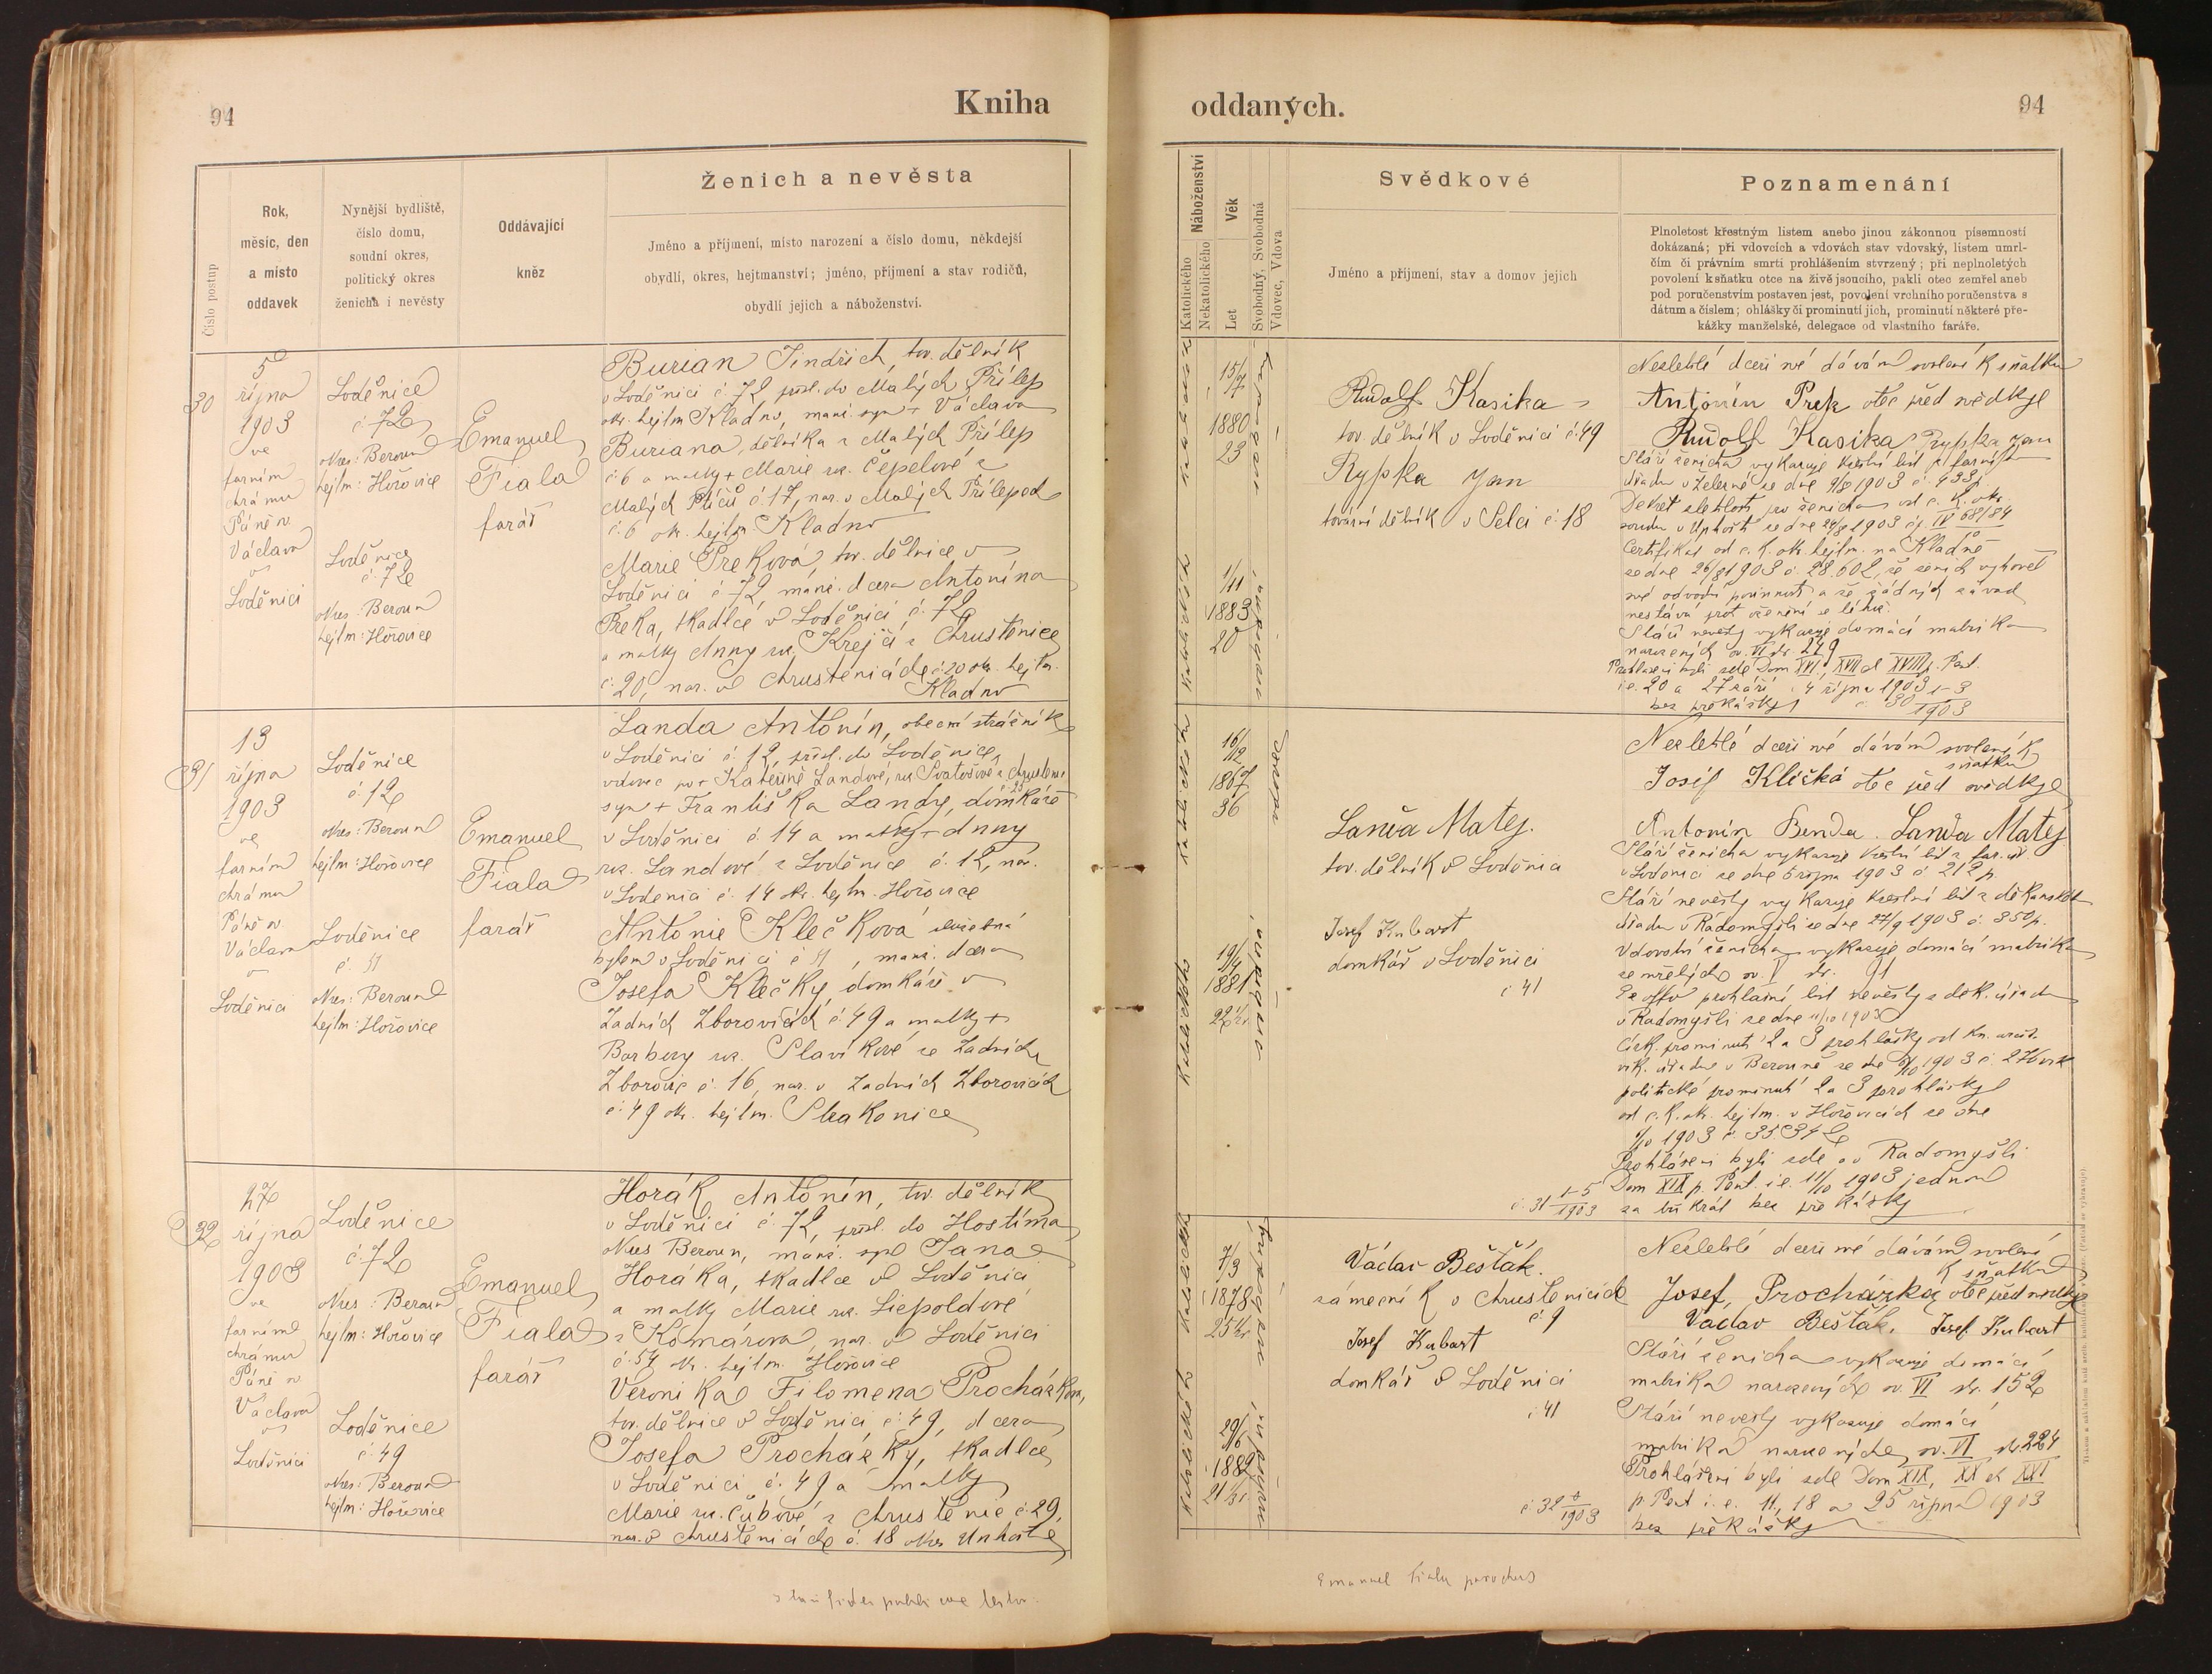 94
Kniha
Číslo postup
Rok,
měsíc, den
a místo
oddavek
Nynější bydliště,
číslo domu,
soudní okres,
politický okres
ženicha i nevěsty
Oddávající
kněz
Ženich a nevěsta
Jméno a příjmení, místo narození a číslo domu, někdejší
obydlí, okres, hejtmanství; jméno, příjmení a stav rodičů,
obydlí jejich a náboženství.
30
5
října
1903
ve
farním
chrámu
Páně sv.
Václava
v
Loděnici
Loděnice
č. 72
okres: Beroun
hejtm: Hořovice
Loděnice
č. 72
okres: Beroun
hejtm: Hořovice
Emanuel
Fiala
farář
Burian Jindřich, tov. dělník
v Loděnici č. 72 přísl. do Malých Přílep
okr. hejtm Kladno, manž. syn + Václava
Buriana, dělníka z Malých Přílep
č. 6 a matky + Marie roz. Čepelové z
č. 17, nar. v Malých Přílepech
č. 6 okr. hejtm. Kladno
Marie Preková, tov. dělnice v
Loděnici č. 72 manž. dcera Antonína
Preka, tkadlce v Loděnici č. 72
a matky Anny roz. Krejčí z Chrustenice
č. 20, nar. v Chrustenicích č. 20 okr. hejtm.
Kladno
31
13
října
1903
ve
farním
chrámu
Páně sv.
Václava
v
Loděnici
Loděnice
č. 12
okres: Beroun
hejtm: Hořovice
Loděnice
č. 41
okres: Beroun
hejtm: Hořovice
Emanuel
Fiala
farář
Landa Antonín, obecní strážník
v Loděnici č. 12, přísl. do Loděnice,
vdovec po + Kateřině Landové, roz. Svatošové z Chrustenic
syn + Františka Landy, domkáře
v Loděnici č. 14 a matky + Anny
roz. Landové z Loděnice č. 12, nar.
v Loděnici č. 14 okr. hejtm. Hořovice
Antonie Klečková služebná
bytem v Loděnici č. 41, manž. dcera
Josefa Klečky, domkáře v
Zadních Zborovicích č. 49 a matky +
Barbory roz. Slavíkové ze Zadních
Zborovic č. 16, nar. v Zadních Zborovicích
č. 49 okr. hejtm. Strakonice
32
27
října
1903
ve
farním
chrámu
Páně sv
Václava
v
Loděnici
Loděnice
č. 72
okres: Beroun
hejtm: Hořovice
Loděnice
č. 49
okres: Beroun
hejtm: Hořovice
Emanuel
Fiala
farář
Horák Antonín, tov. dělník
v Loděnici č. 72, přísl. do Hostíma,
okres Beroun, manž. syn Jana
Horáka, tkadlce v Loděnici
a matky Marie roz. Liepoldové
z Komárova, nar. v Loděnici
č. 54 okr. hejtm. Hořovice
Veronika Filomena Procházková,
tov. dělnice v Loděnici č. 49, dcera
Josefa Procházky, tkadlce
v Loděnici č. 49 a matky
Marie roz. Čubové z Chrustenic č. 29,
nar. v Chrustenicích č. 18 okres Unhošť
oddaných.
94
Náboženství
Katolického
Nekatolického
Věk
Let
Svobodný, Svobodná
Vdovec, Vdova
Svědkové
Jméno a příjmení, stav a domov jejich
Poznamenání
Plnoletost křestným listem anebo jinou zákonnou písemností
dokázaná; při vdovcích a vdovách stav vdovský, listem umrl-
čím či právním smrti prohlášením stvrzený; při neplnoletých
povolení k sňatku otce na živě jsoucího, pakli otec zemřel aneb
pod poručenstvím postaven jest, povolení vrchního poručenstva s
dátum a číslem; ohlášky či prominutí jich, prominutí některé pře-
kážky manželské, delegace od vlastního faráře.
15/7
1880
23
1/11
1883
20
Rudolf Kasika
tov. dělník v Loděnici č. 49
Rypka Jan
tovární dělník v Selci č. 18
Nezletilé dceři mé dávám svolení k sňatku
Antonín Prek otec před svědky
Rudolf Kasika Rypka Jan
Stáří ženicha vykazuje křestní list z farního
úřadu v Železné ze dne 9/8 1903 č. 433
Dekret zletilosti pro ženicha od c. k. okr.
soudu v Unhošti ze dne 24/8 1903 čj. IV 68/84
Certifikát od c. k. okr. hejtm. na Kladně
ze dne 26/8 1903 č. 28.602, že ženich vyhověl
své odvodní povinnosti a že žádných závad
Stáří nevěsty vykazuje domácí matrika
narozených sv. VI str. 279
Prohlášeni byli zde Dom XVI, XVII et XVIII p. Pent.
i.e. 20 a 27 září, 4 října 1903
bez překážky č. 30 1-3/1903
16/12
1867
36
19/4
1881
22
Landa Matěj.
tov. dělník v Loděnici
Josef Kubart
domkář v Loděnici
č. 41
Nezletilé dceři mé dávám svolení k
sňatku
Josef Klečka otec před svědky
Antonín Benda. Landa Matěj
Stáří ženicha vykazuje křestní list z far. úř.
v Loděnici ze dne 5 října 1903 č. 212 p.
Stáří nevěsty vykazuje křestní list z děkanského
úřadu v Radomyšli ze dne 27/9 1903 č. 350 p.
Vdovství ženicha vykazuje domácí matrika
zemřelých sv. V str. 91
Ex offo prohlašní list nevěsty z děk. úřadu
v Radomyšli ze dne 11/10 1903
Círk. prominutí 2 a 3 prohlášky od
vik. úřadu v Berouně ze dne
politické prominutí 2 a 3 prohlášky
od c. k. okr. hejtm. v Hořovicích ze dne
1903 č. 35.342
Prohlášeni byli zde a v Radomyšli
Dom XIX p. Pent. i.e. 11/10 1903 jednou
č. 31 1-5/1903 za tři krát bez překážky
7/3
1878
25
29/6
1882
21
Václav Bešťák.
zámečník v Chrustenicích
č. 9
Josef Kubart
domkář v Loděnici
č. 41
Nezletilé dceři mé dávám svolení
k sňatku
Josef Procházka otec před svědky
Václav Bešťák. Josef Kubart
Stáří ženicha vykazuje domácí
matrika narozených sv. VI str. 152
Stáří nevěsty vykazuje domácí
matrika narozených sv. VI str. 224
Prohlášeni byli zde Dom XIX, XX et XXI
p. Pent i. e. 11, 18 a 25 října 1903
bez překážky
č. 32
Emanuel Fiala parochus